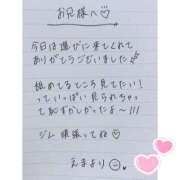 お兄様へ♡
今日は遊びに来てくれて
ありがとうございました!!
舐めてるところ見てたい!
っていっぱい見られちゃっ
て恥ずかしかったよ〜!!!
ジム頑張ってね♡
えまより